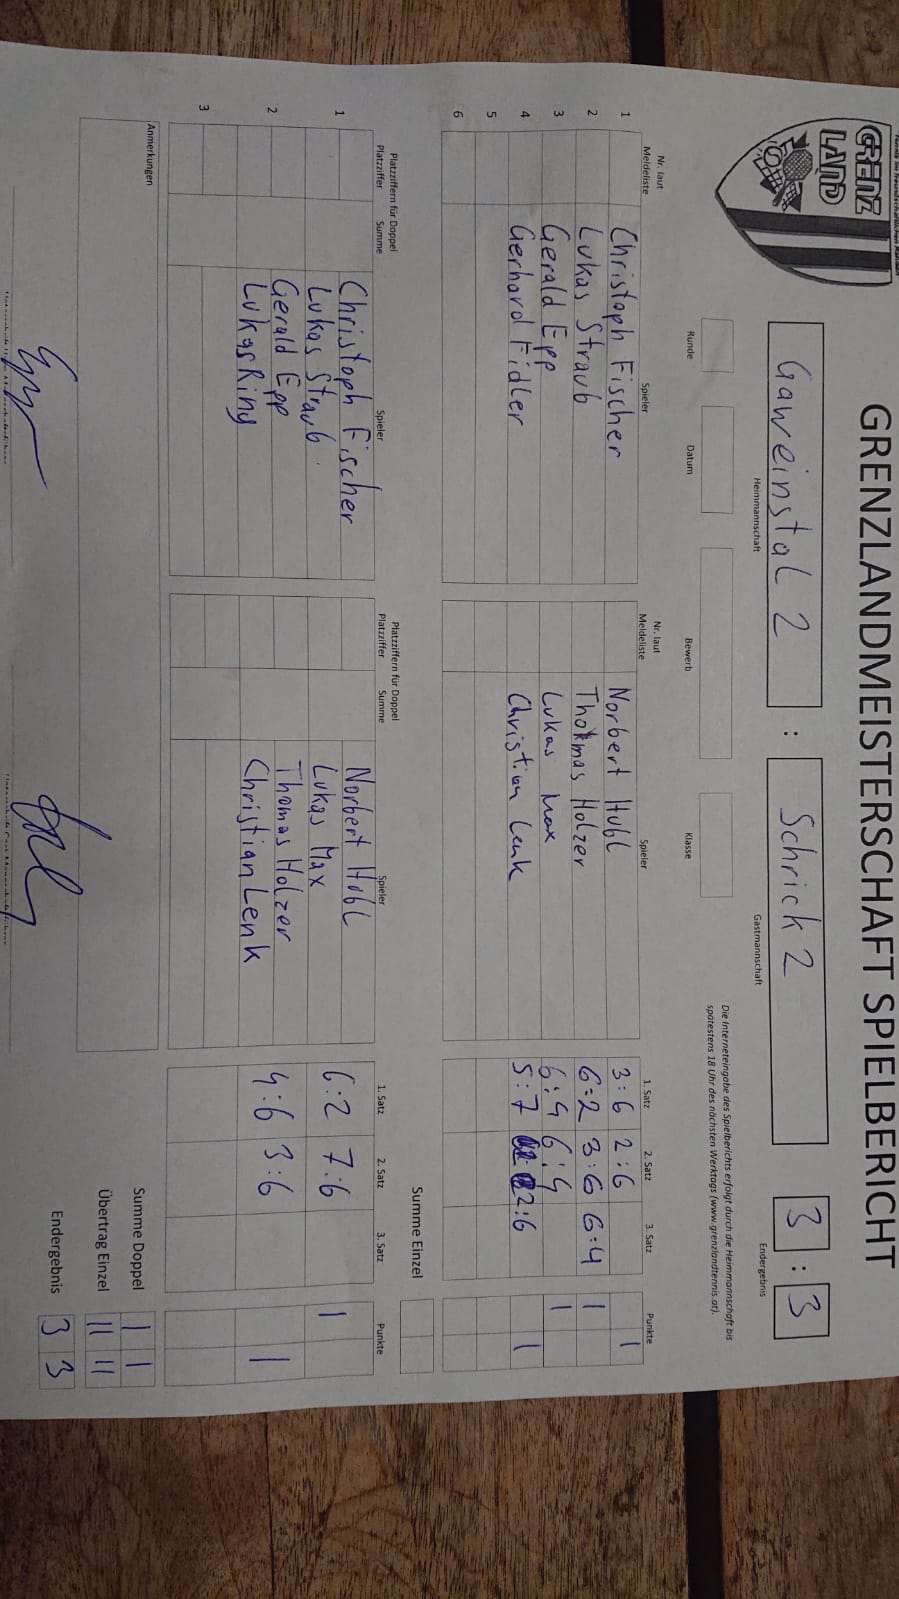 GRENZ
LAND
GRENZLANDMEISTERSCHAFT SPIELBERICHT
Gaweinstal 2 : Schrick 2 3 : 3
Heimmannschaft Gastmannschaft Endergebnis
Runde Datum Bewerb Klasse
Die Interneteingabe des Spielberichts erfolgt durch die Heimmannschaft bis
spätestens 18 Uhr des nächsten Werktags (www.grenzlandtennis.at).
Nr. laut Meldeliste Spieler Nr. laut Meldeliste Spieler 1. Satz 2. Satz 3. Satz Punkte
1 Christoph Fischer Norbert Hubl 3:6 2:6 1
2 Lukas Straub Thomas Holzer 6:2 3:6 6:4 1
3 Gerald Epp Lukas Max 6:4 6:4 1
4 Gerhard Fidler Christian Lenk 5:7 2:6 1
5
6
Summe Einzel
Platzziffern für Doppel Platzziffern für Doppel
Platzziffer Summe Spieler Platzziffer Summe Spieler 1. Satz 2. Satz 3. Satz Punkte
1 Christoph Fischer Norbert Hubl
Lukas Straub Lukas Max 6:2 7:6 1
2 Gerald Epp Thomas Holzer
Lukas Ring Christian Lenk 4:6 3:6 1
3
Anmerkungen
Summe Doppel 1 1
Übertrag Einzel 11 11
Endergebnis 3 3